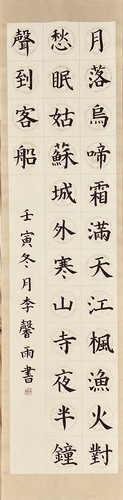 月落烏啼霜滿天江楓漁火對
愁眠姑蘇城外寒山寺夜半鐘
聲到客船
壬寅冬月李馨雨書